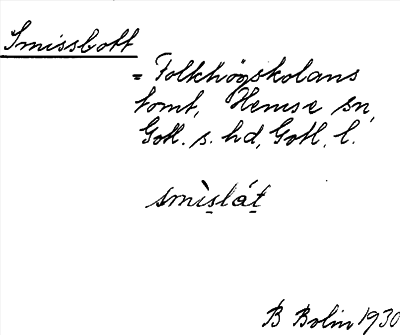 Smissbott
= Folkhögskolans
tomt, Hemse sn,
Gotl. s. hd, Gotl. l.
smìslát
B Bolin 1930